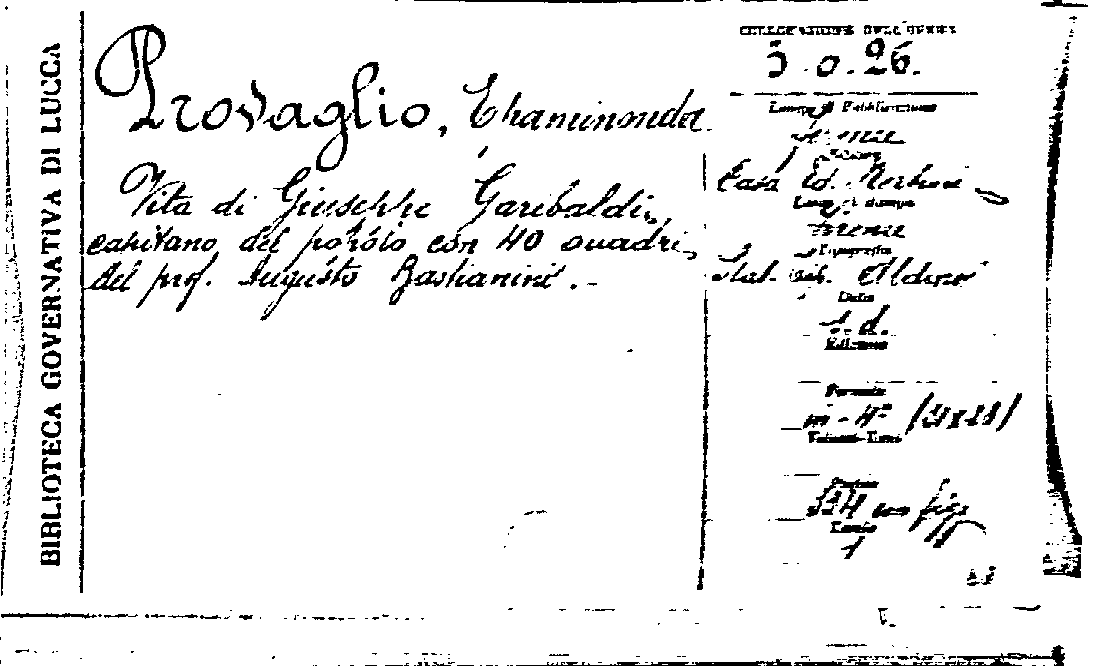 BIBLIOTECA GOVERNATIVA DI LUCCA
Provaglio, Epaminonda
Vita di Giuseppe Garibaldi,
capitano del popolo con 40 quadri
del prof. Augusto Bastianini.-
COLLOCAZIONE DELL'OPERA
5.0.26.
Luogo di Pubblicazione
Firenze
Editore
Casa Ed. Nerbini
Luogo di stampa
Firenze
Tipografia
Stab. Aldino
Data
s.d.
Edizione
Formato
in-4°
Pagine
con figg
1